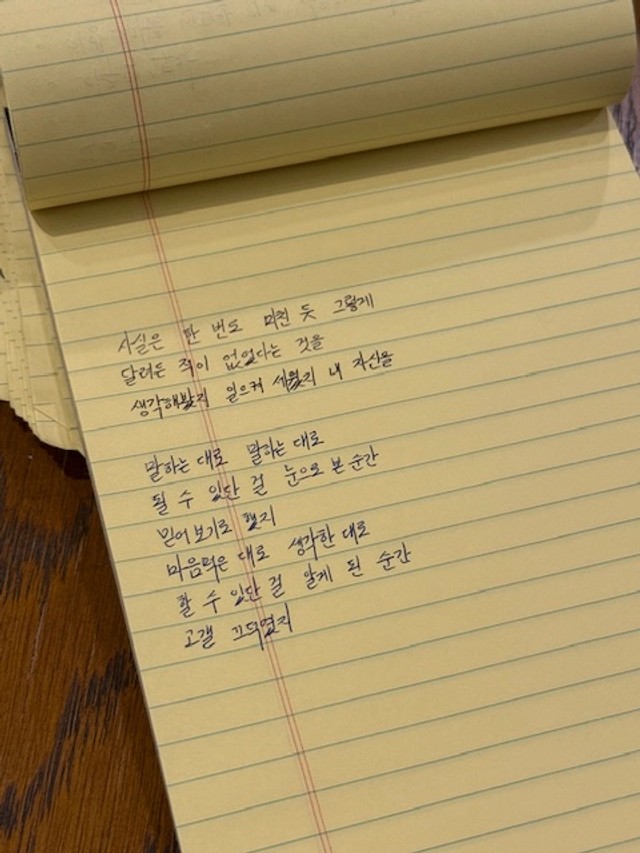 사실은 한 번도 미친 듯 그렇게
달려든 적이 없었다는 것을
생각해봤지 일으켜 세웠지 내 자신을
말하는 대로 말하는 대로
될 수 있단 걸 눈으로 본 순간
믿어보기로 했지
마음먹은 대로 생각한 대로
할 수 있단 걸 알게 된 순간
고갤 끄덕였지